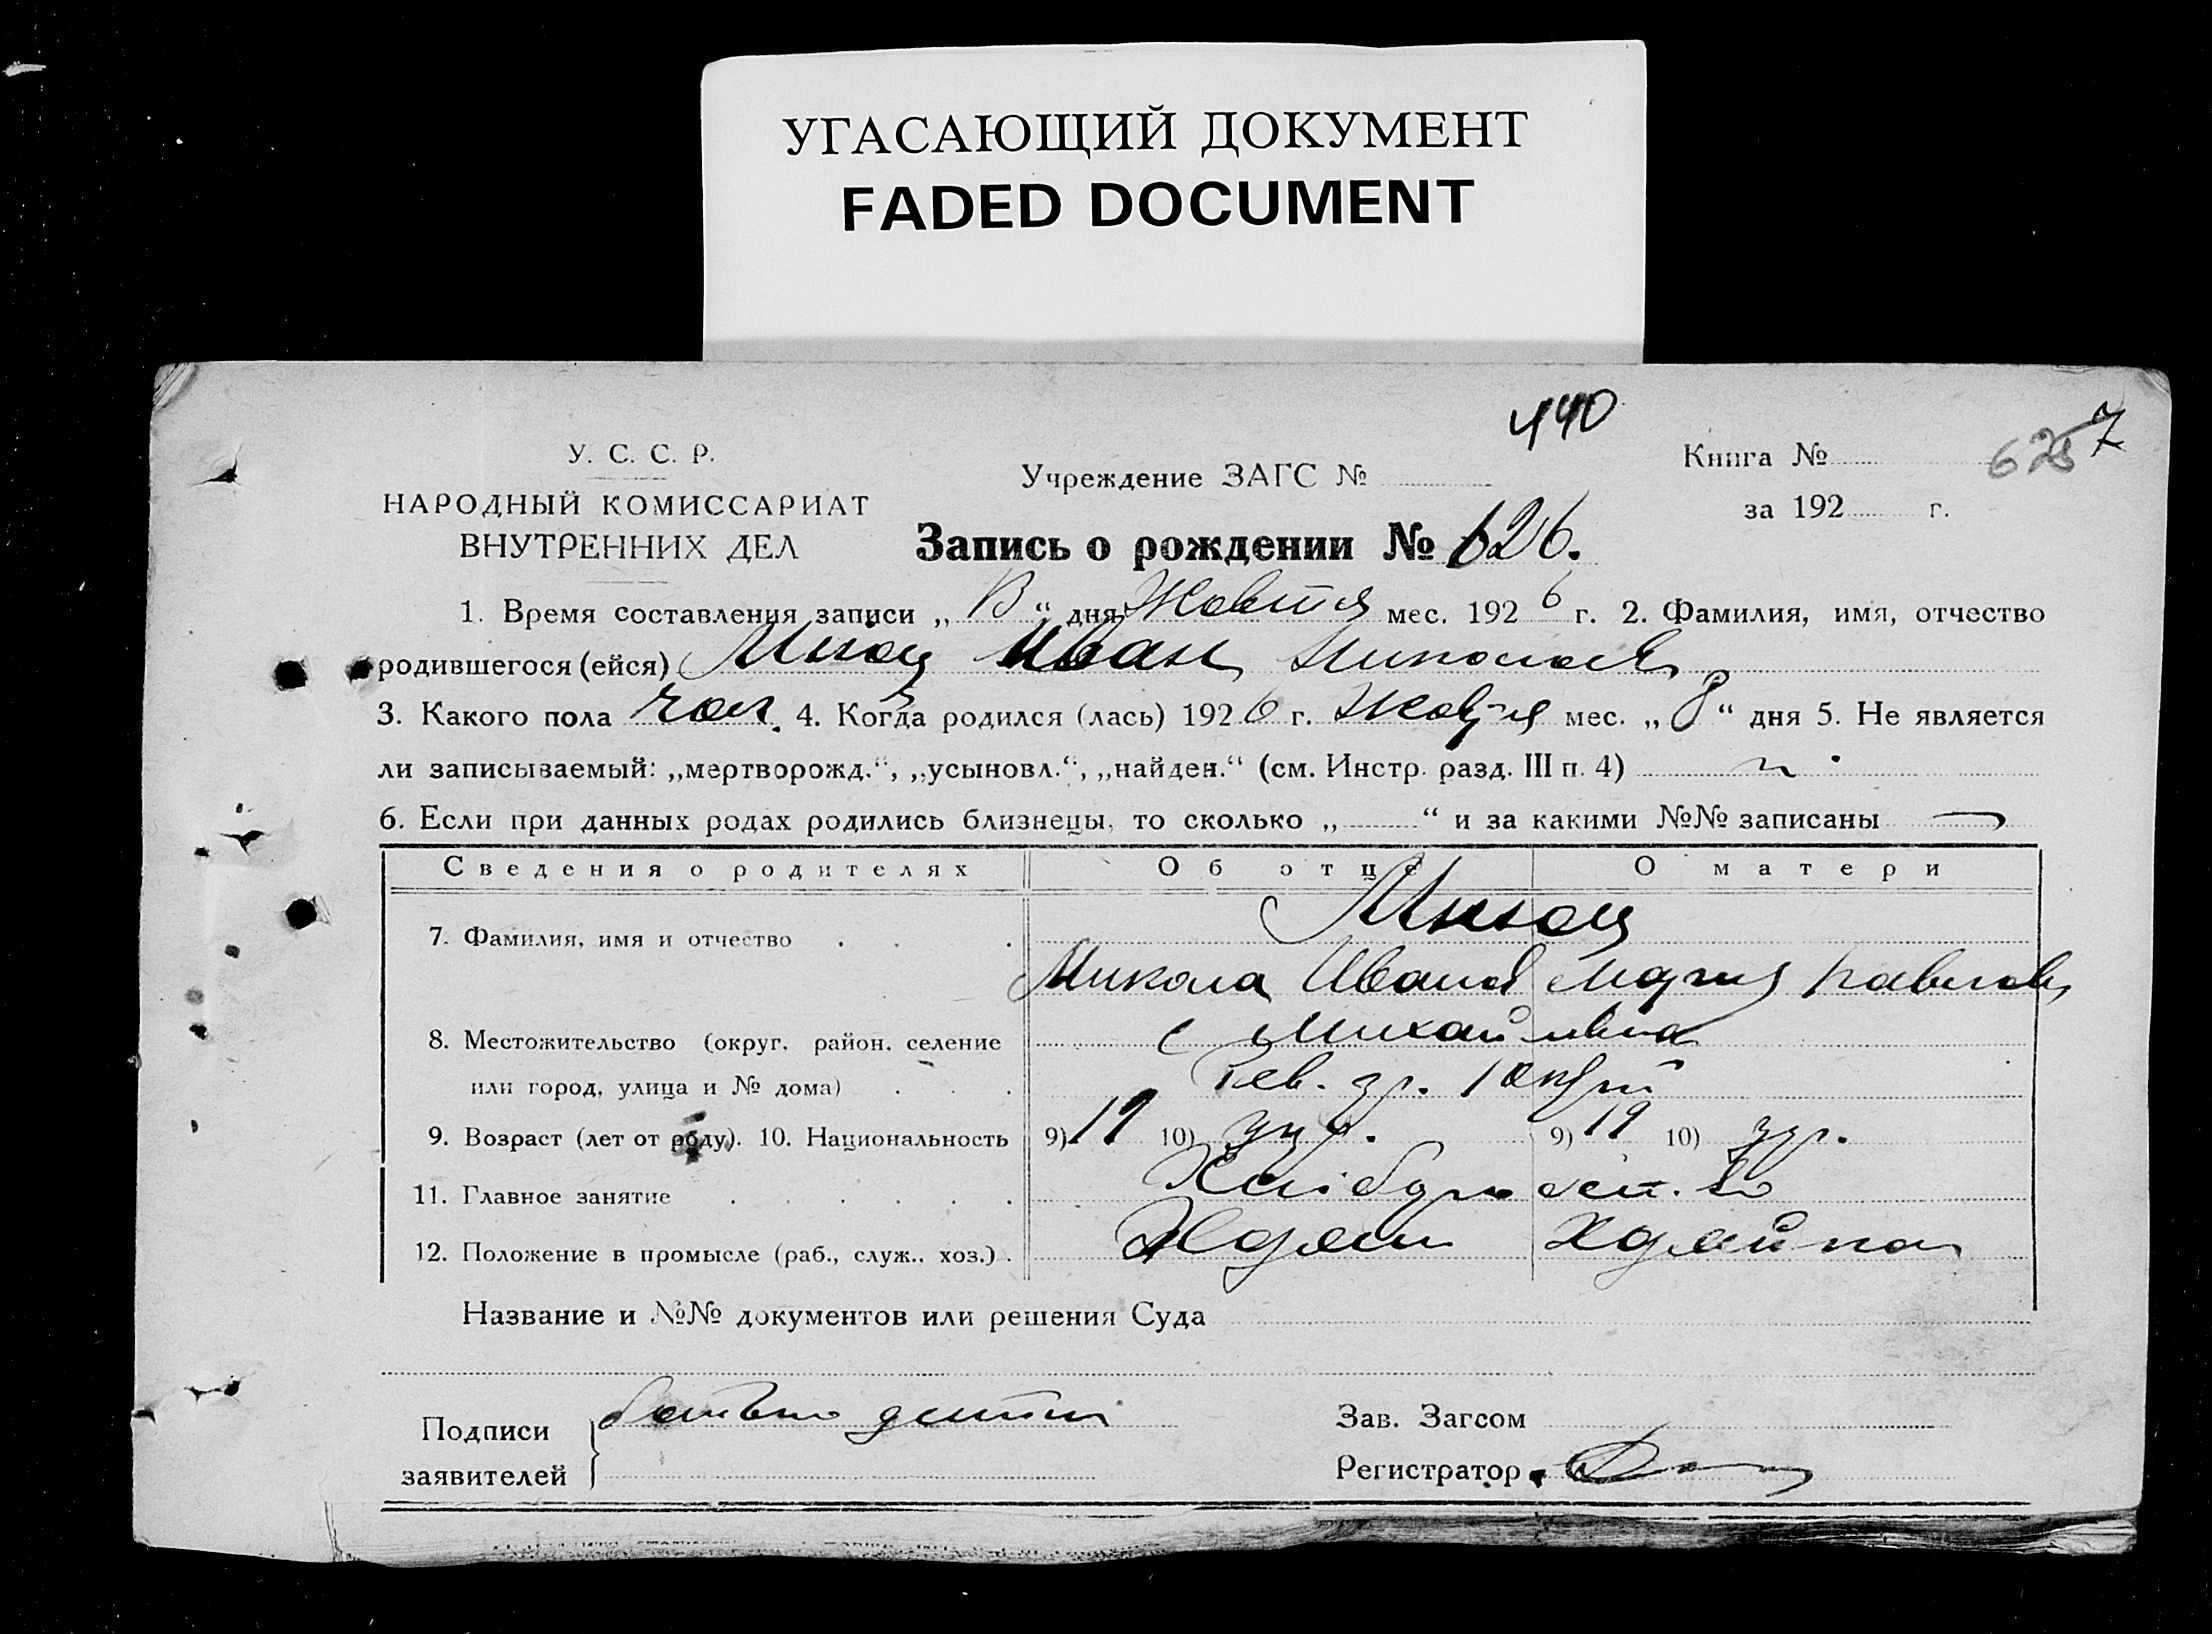 УГАСАЮЩИЙ ДОКУМЕНТ
FADED DOCUMENT
440
У. С. С. Р.
НАРОДНЫЙ КОМИССАРИАТ
ВНУТРЕННИХ ДЕЛ
Учреждение ЗАГС №
Книга №
7
за 192 г.
Запись о рождении № 626.
1. Время составления записи „ “ дня Жовтня мес. 1926 г. 2. Фамилия, имя, отчество
родившегося (ейся) Иван Николаев
3. Какого пола чол. 4. Когда родился (лась) 1926 г. Жовтня мес. „8“ дня 5. Не является
ли записываемый: „мертворожд.“, „усыновл.“, „найден.“ (см. Инстр. разд. III п. 4)
6. Если при данных родах родились близнецы, то сколько „ “ и за какими №№ записаны —
Сведения о родителях Об отце О матери
7. Фамилия, имя и отчество
Микола Иванов Мария Павлов
8. Местожительство (округ, район, селение с Михайлівка
или город, улица и № дома)
9. Возраст (лет от роду). 10. Национальность 9) 19 10) укр. 9) 19 10) укр.
11. Главное занятие Хлібороб
12. Положение в промысле (раб., служ., хоз.)
Название и №№ документов или решения Суда
Подписи
заявителей
батько дитини
Зав. Загсом
Регистратор